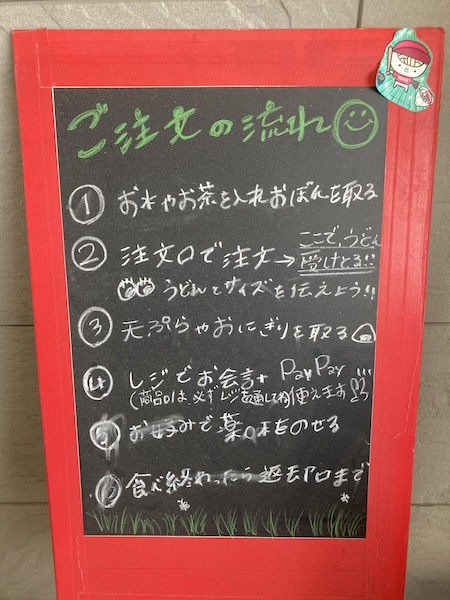 ご注文の流れ
① お水やお茶を入れおぼんを取る
② 注文口で注文→ここで、うどん受けとる!!
うどんとサイズを伝えよう!!
③ 天ぷらやおにぎりを取る
④ レジでお会計 PayPay
(商品は必ずレジを通してね) 使えます
⑤ お好みで薬味をのせる
⑥ 食べ終わったら返却口まで